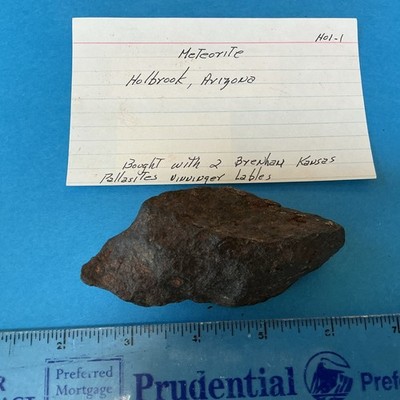 Hol-1
Meteorite
Holbrook, Arizona
Bought with 2 Brenham Kansas
Pallasites Nininger Lables
2 3 4 5 6 7
Preferred
Mortgage
Prudential